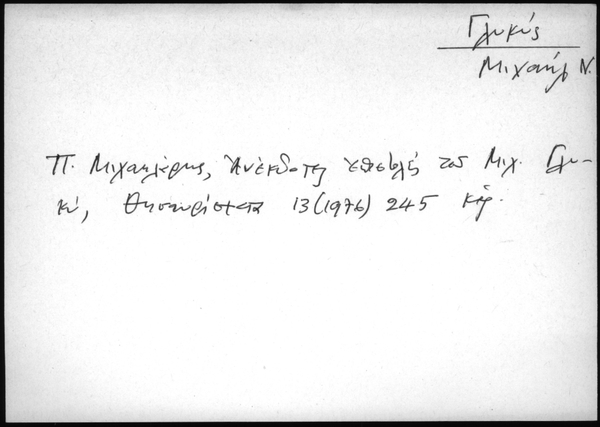 Γλυκύς
Μιχαήλ Ν.
Π. Μιχαηλάρης, Ἀνέκδοτες ἐπιστολές τοῦ Μιχ. Γλυ-
κύ, Θησαυρίσματα 13 (1976) 245 κἑ.